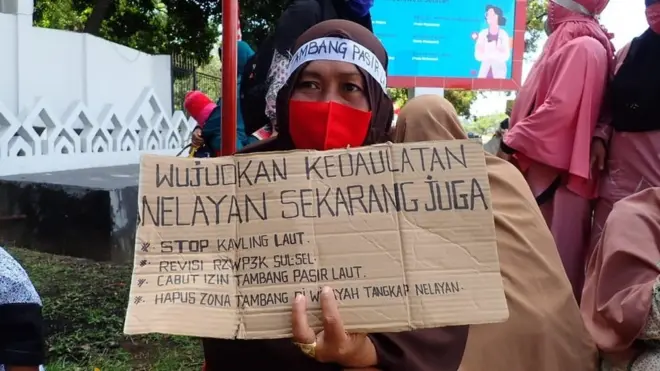 TAMBANG PASIR
WUJUDKAN KEDAULATAN
NELAYAN SEKARANG JUGA
* STOP KAVLING LAUT.
* REVISI RZWP3K SUL-SEL.
* CABUT IZIN TAMBANG PASIR LAUT.
* HAPUS ZONA TAMBANG DI WILAYAH TANGKAP NELAYAN.